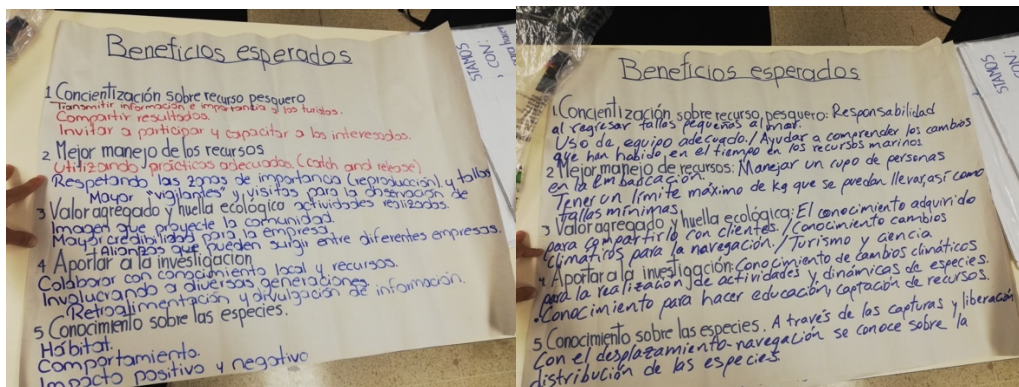 Beneficios esperados
1 Concientización sobre recurso pesquero
Transmitir información e importancia a los turistas.
Compartir resultados.
Invitar a participar y capacitar a los interesados.
2 Mejor manejo de los recursos
Utilizando prácticas adecuadas. (catch and release)
Respetando las zonas de importancia (reproducción) y tallas
Mayor "vigilantes" y visitas para la observación de
actividades realizadas.
3 Valor agregado y huella ecológico
Imagen que proyecte la comunidad.
Mayor credibilidad para la empresa.
Alianzas que pueden surgir entre diferentes empresas.
4 Aportar a la investigación
Colaborar con conocimiento local y recursos.
Involucrando a diversas generaciones.
Retroalimentación y divulgación de información.
5 Conocimiento sobre las especies.
Hábitat.
Comportamiento.
Impacto positivo y negativo
STAMOS
CON:
Beneficios esperados
1.Concientización sobre recurso pesquero: Responsabilidad
al regresar tallas pequeñas al mar.
Uso de equipo adecuado / Ayudar a comprender los cambios
que han habido en el tiempo en los recursos marinos
2 Mejor manejo de recursos: Manejar un cupo de personas
en la embarcación.
Tener un límite máximo de kg que se puedan llevar, así como
tallas mínimas
3 Valor agregado y huella ecológica: El conocimiento adquirido
para compartirlo con clientes. / Conocimiento cambios
climáticos para la navegación. / Turismo y ciencia
4 Aportar a la investigación: Conocimiento de cambios climáticos
para la realización de actividades y dinámicas de especies.
.Conocimiento para hacer educación, captación de recursos.
5 Conocimiento sobre las especies. A través de las capturas y liberación
Con el desplazamiento-navegación se conoce sobre la
distribución de las especies.
STAMOS
CON: